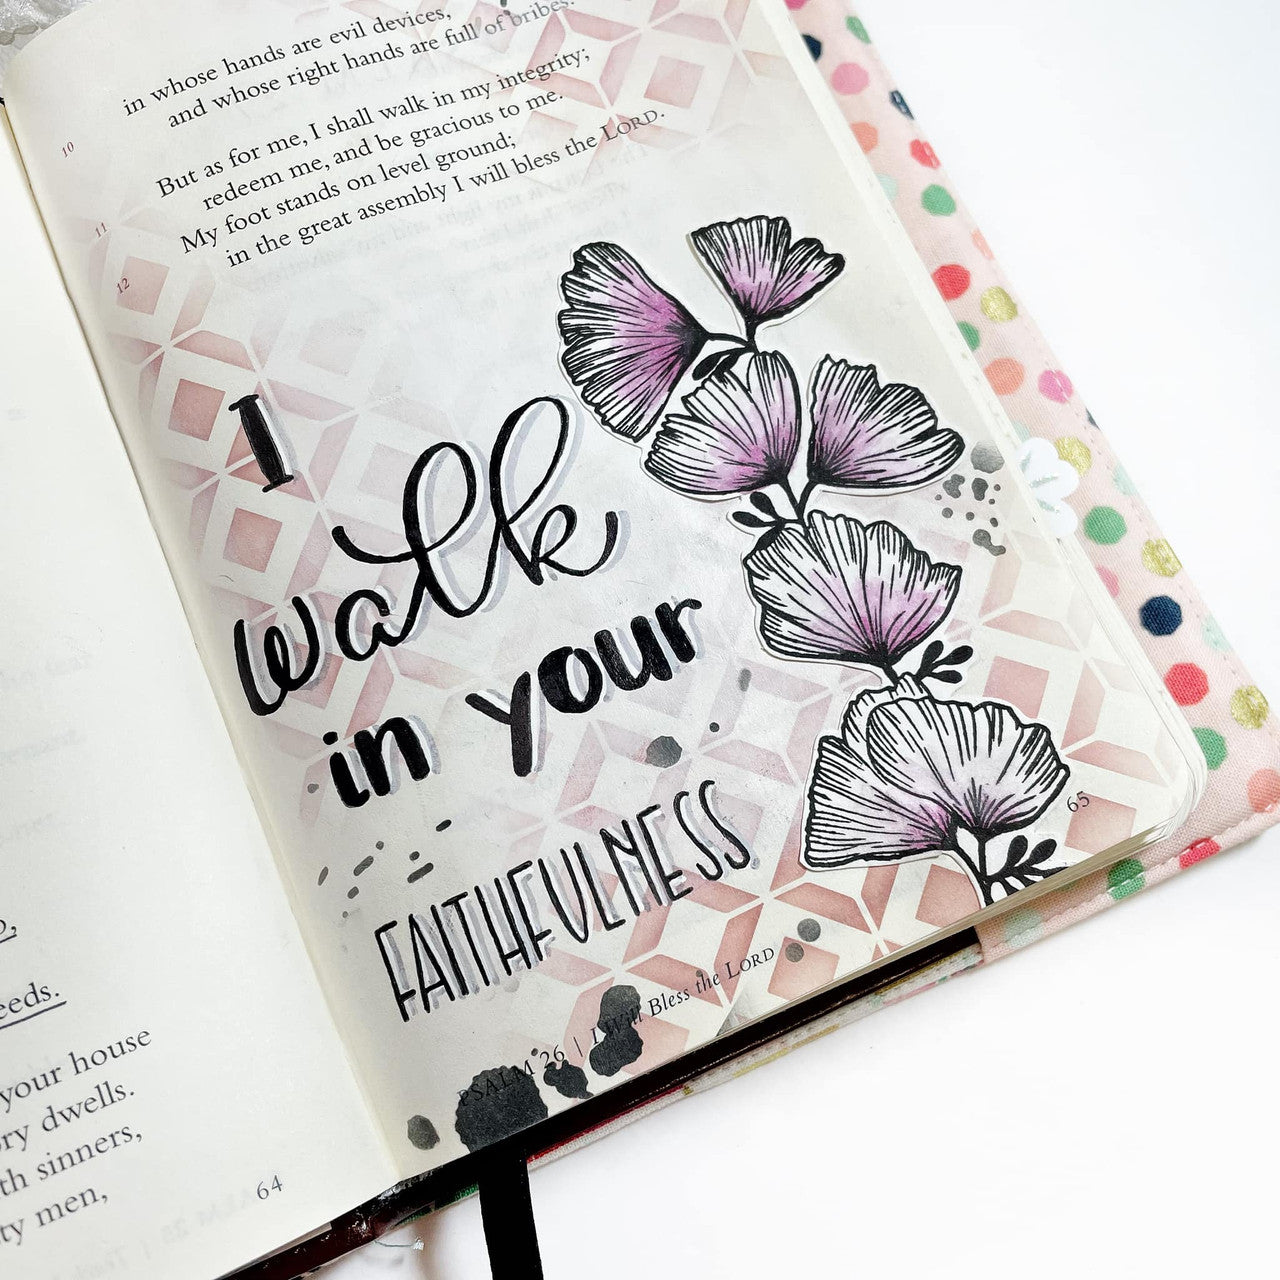 eeds.
your house
ory dwells.
th sinners,
ty men,
64
in whose hands are evil devices,
and whose right hands are full of bribes.
10
But as for me, I shall walk in my integrity;
redeem me, and be gracious to me.
11
My foot stands on level ground;
in the great assembly I will bless the LORD.
12
I
walk
in your
FAITHFULNESS
65
PSALM 26 | I Will Bless the LORD